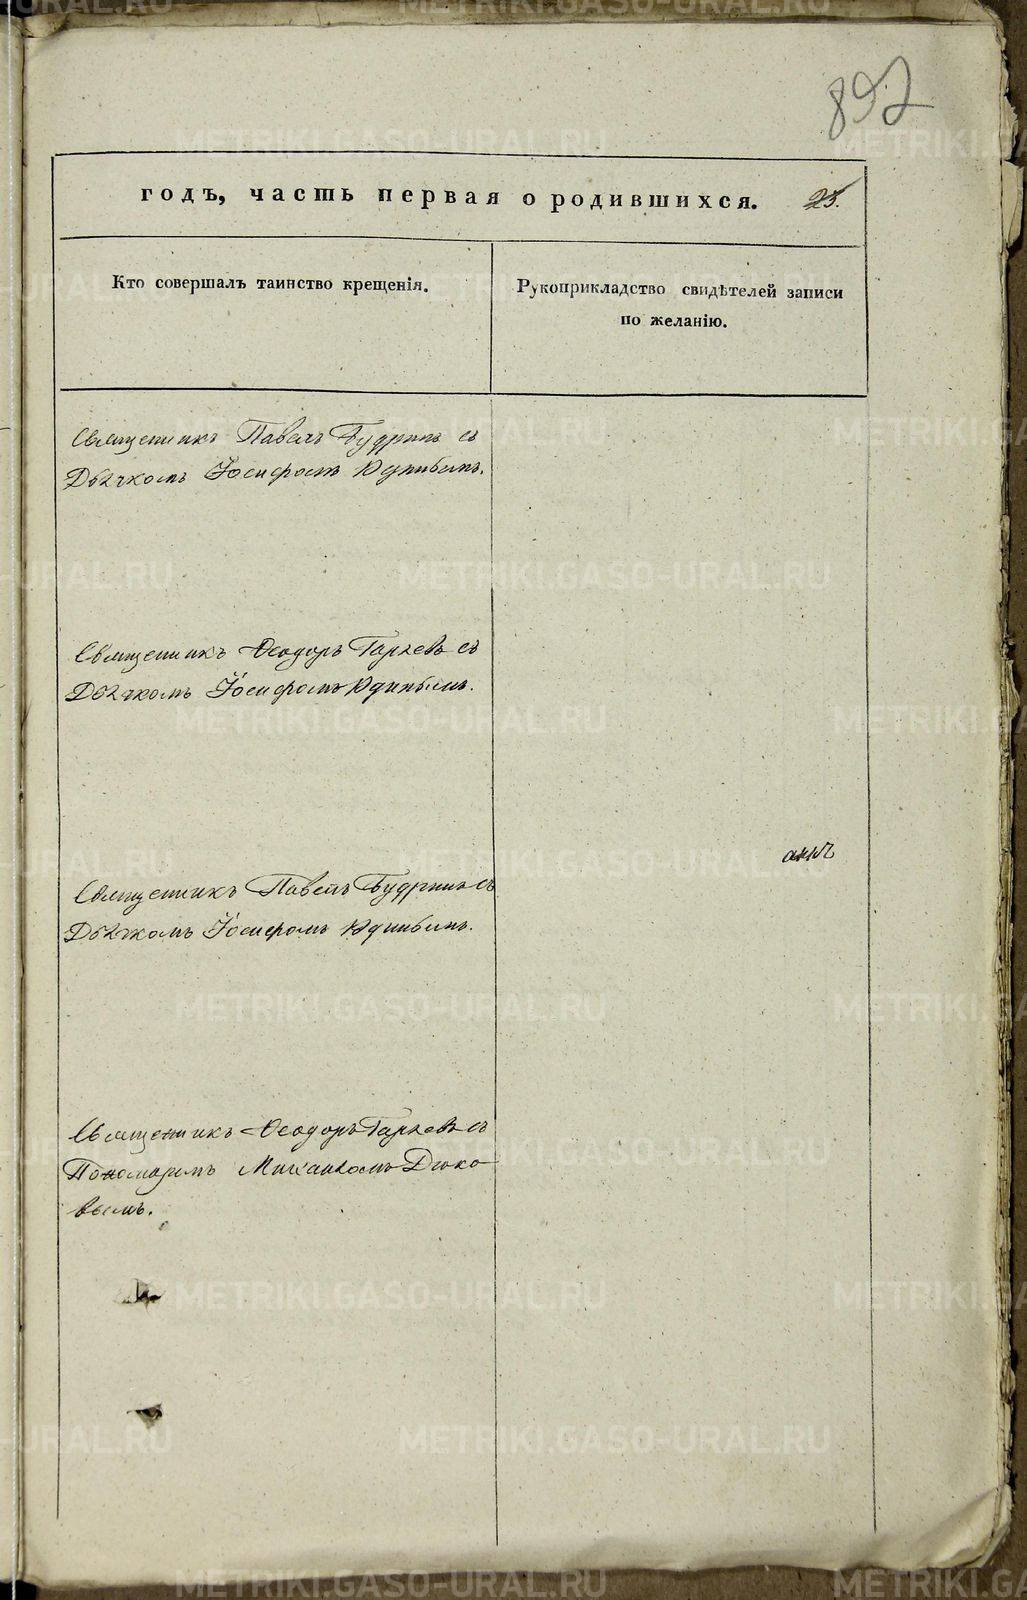 892
годъ, часть первая о родившихся. 25.
Кто совершалъ таинство крещенія.
Рукоприкладство свидѣтелей записи
по желанію.
Священникъ Павелъ Будринъ съ
Дьячкомъ Іосифомъ Юдинымъ.
Священникъ Ѳеодоръ Гаряевъ съ
Дьячкомъ Іосифомъ Юдинымъ.
Священникъ Павелъ Будринъ съ
Дьячкомъ Іосифомъ Юдинымъ.
Священникъ Ѳеодоръ Гаряевъ съ
Пономаремъ Михаиломъ Дюко
вымъ.
METRIKI.GASO-URAL.RU